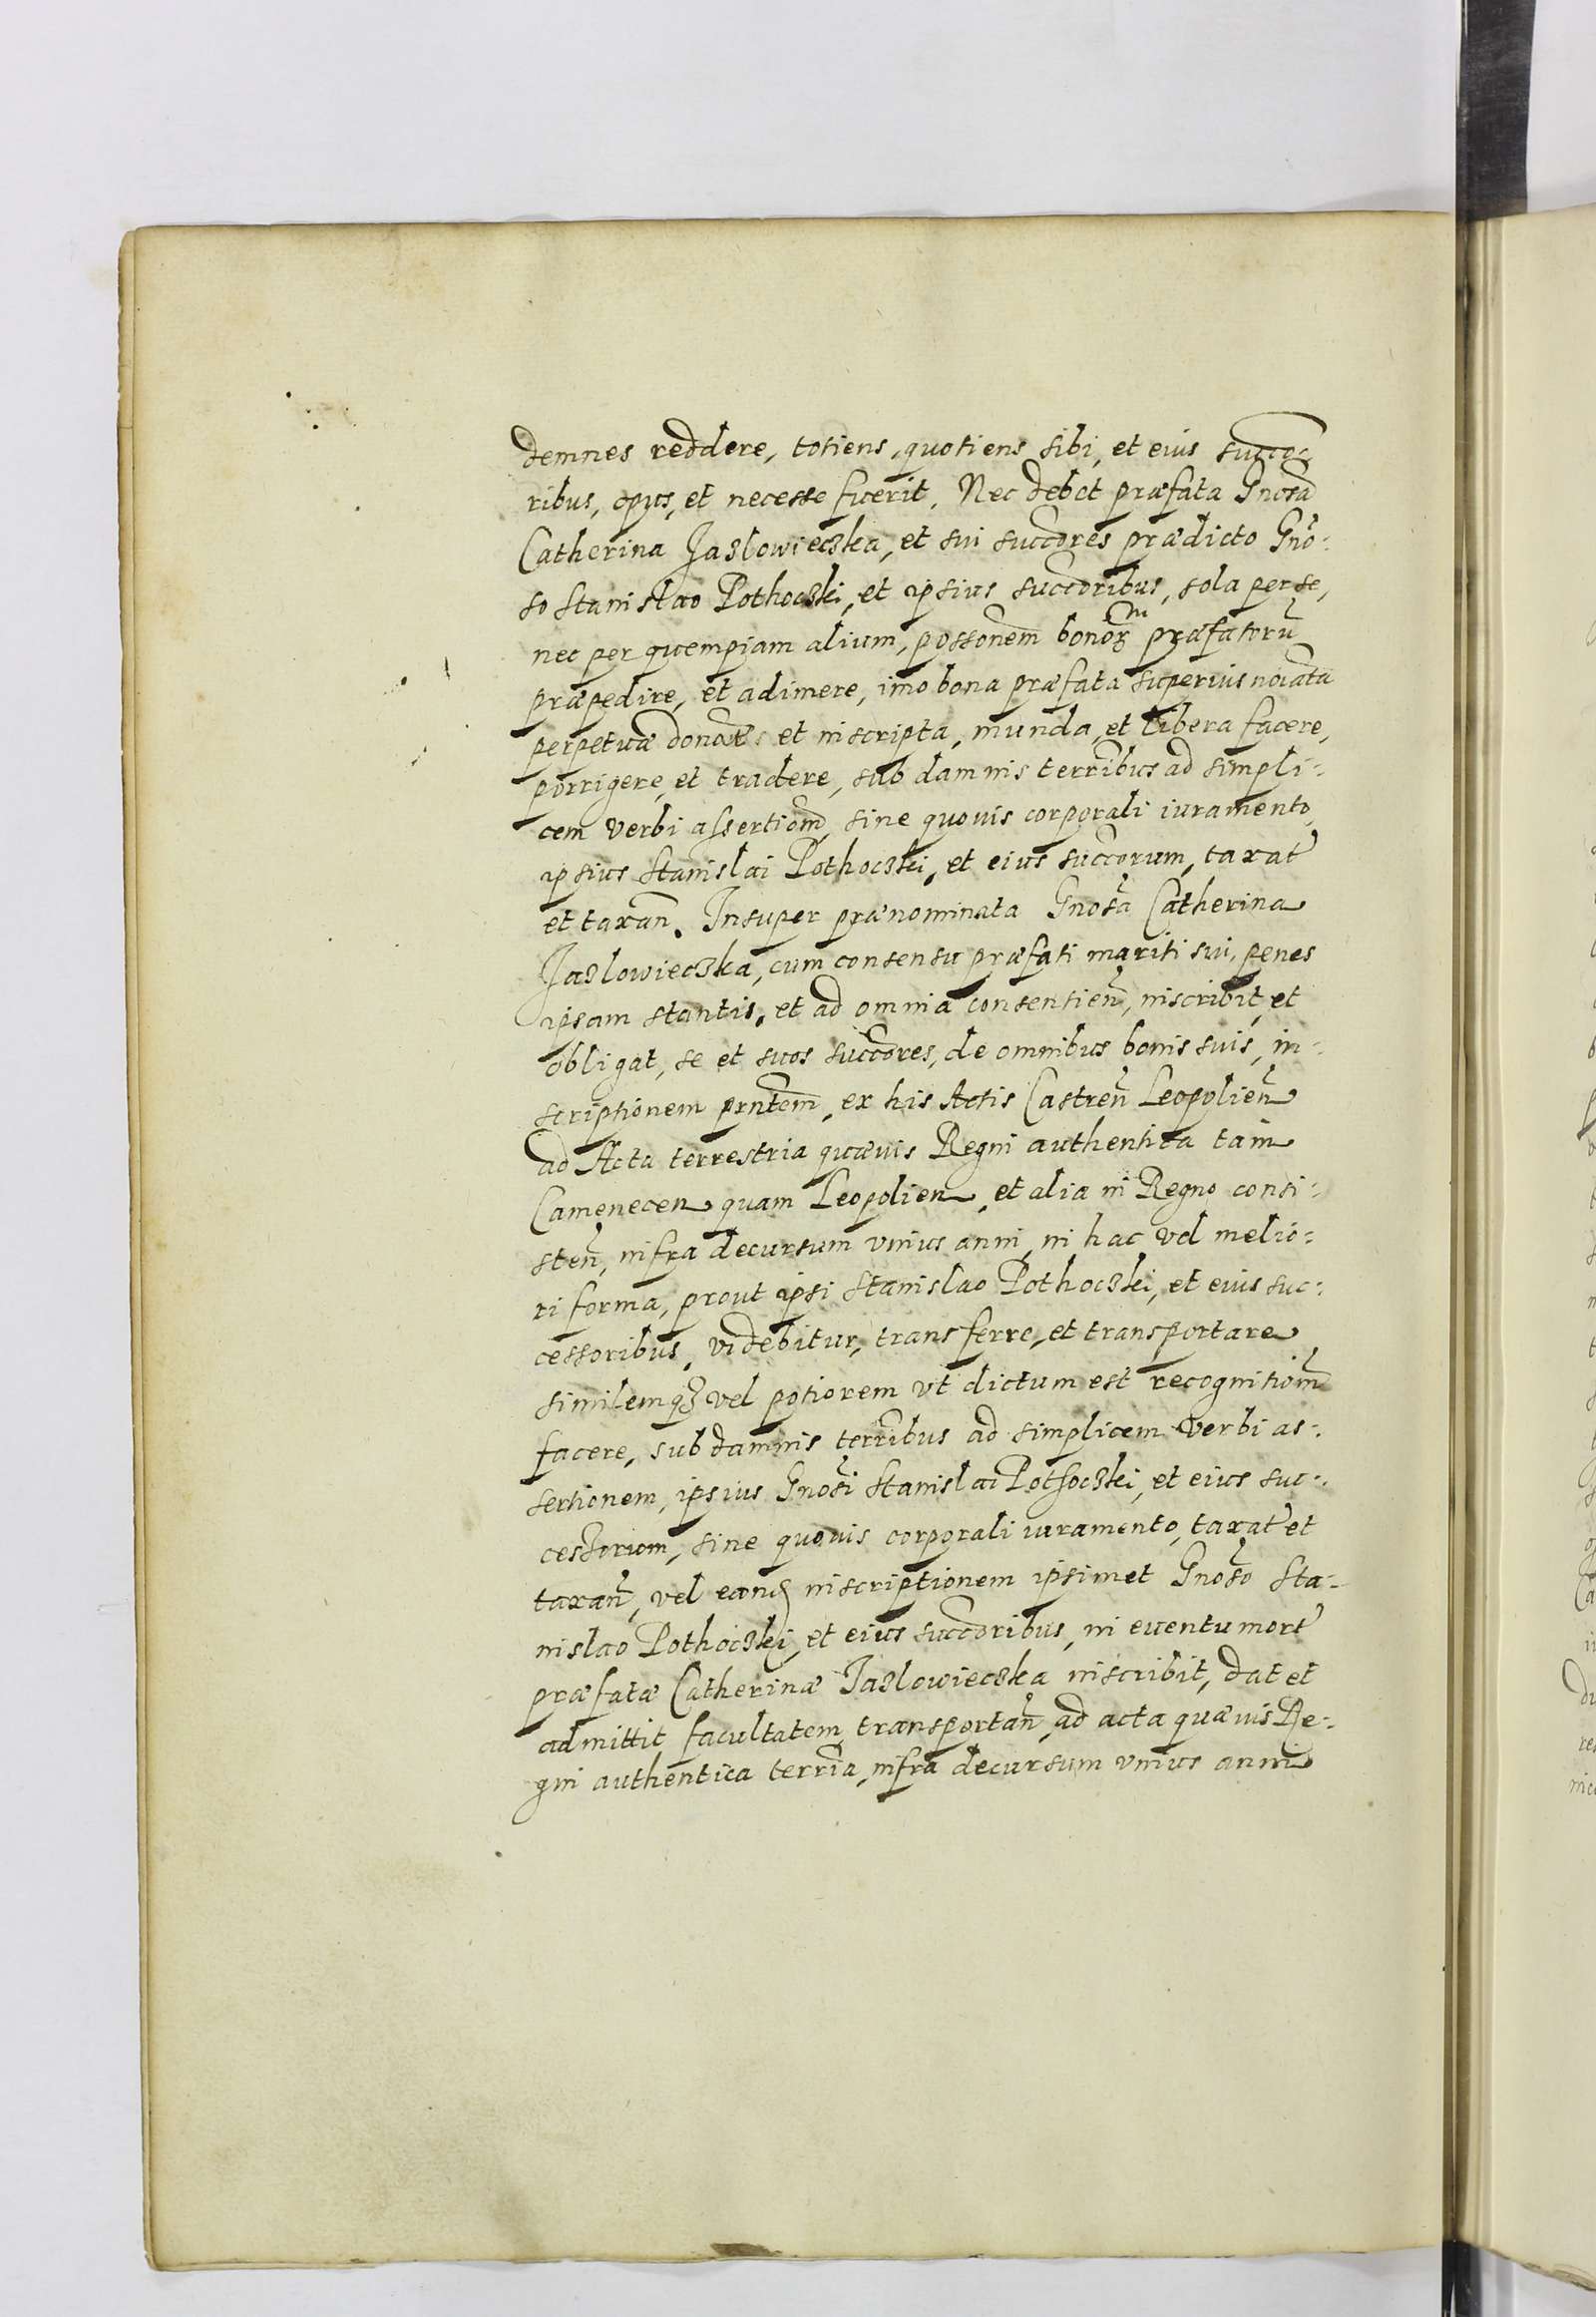 demnes reddere, totiens, quotiens sibi, et eius succo-
ribus, opus, et necesse fuerit. Nec debet præfata Gnosa
Catherina Jazlowieczka, et sui succores prædicto Gno-
so Stanislao Pothoczki, et ipsius succoribus, sola per se,
nec per quempiam alium, possonem bonor præfatoru
præpedire, et adimere, imo bona præfata superius noiata
perpetuæ donat et inscripta, munda, et libera facere,
porrigere, et tradere, sub damnis terribus ad simpli-
cem verbi assertiom, sine quouis corporali iuramento,
ipsius Stanislai Pothoczki, et eius succorum, taxat
et taxan. Insuper prænominata Gnosa Catherina
Jazlowieczka, cum consensu præfati mariti sui, penes
ipsam stantis, et ad omnia consentien, inscribit, et
obligat, se et suos succores, de omnibus bonis suis, in-
scriptionem prntem, ex his Actis Castren Leopolien
ad Acta terrestria quæuis Regni authentica tam
Camenecen quam Leopolien, et alia in Regno consi-
sten, infra decursum vnius anni, in hac vel melio-
ri forma, prout ipsi Stanislao Pothoczki, et eius suc-
cessoribus, videbitur, transferre, et transportare
similemq3 vel potiorem vt dictum est recognitiom
facere, sub damnis terribus ad simplicem verbi as-
sertionem, ipsius Gnosi Stanislai Pothoczki, et eius suc-
cessorum, sine quouis corporali iuramento, taxat et
taxan, vel eand inscriptionem ipsimet Gnoso Sta-
nislao Pothoczki, et eius succoribus, in euentu mort
præfatæ Catherinæ Jazlowieczka inscribit, dat et
admittit facultatem transportan, ad acta quæuis Re-
gni authentica terria, infra decursum vnius anni